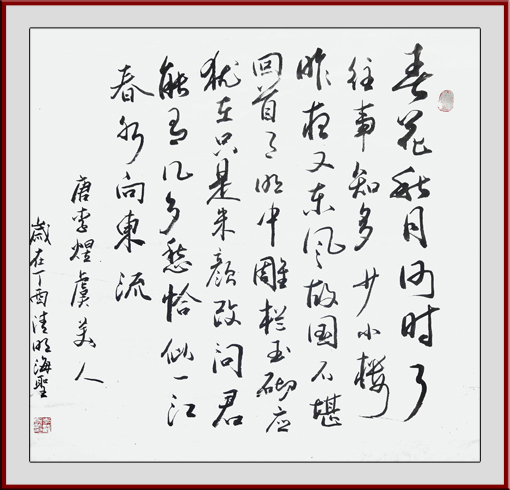 春花秋月何时了
往事知多少小楼
昨夜又东风故国不堪
回首月明中雕栏玉砌应
犹在只是朱颜改问君
能有几多愁恰似一江
春水向東流
唐李煜虞美人
歲在丁酉清明海聖